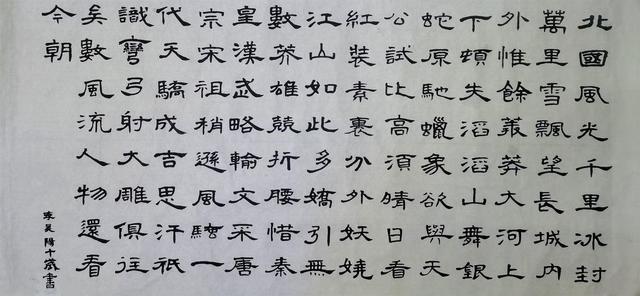 北國風光千里冰封
萬里雪飄望長城内
外惟餘莽莽大河上
下頓失滔滔山舞銀
蛇原馳蠟象欲與天
公試比高須晴日看
紅裝素裹分外妖嬈
江山如此多嬌引無
數英雄競折腰惜秦
皇漢武略輸文采唐
宗宋祖稍遜風騷一
代天驕成吉思汗祇
識彎弓射大雕俱往
矣數風流人物還看
今朝
陽十歲書